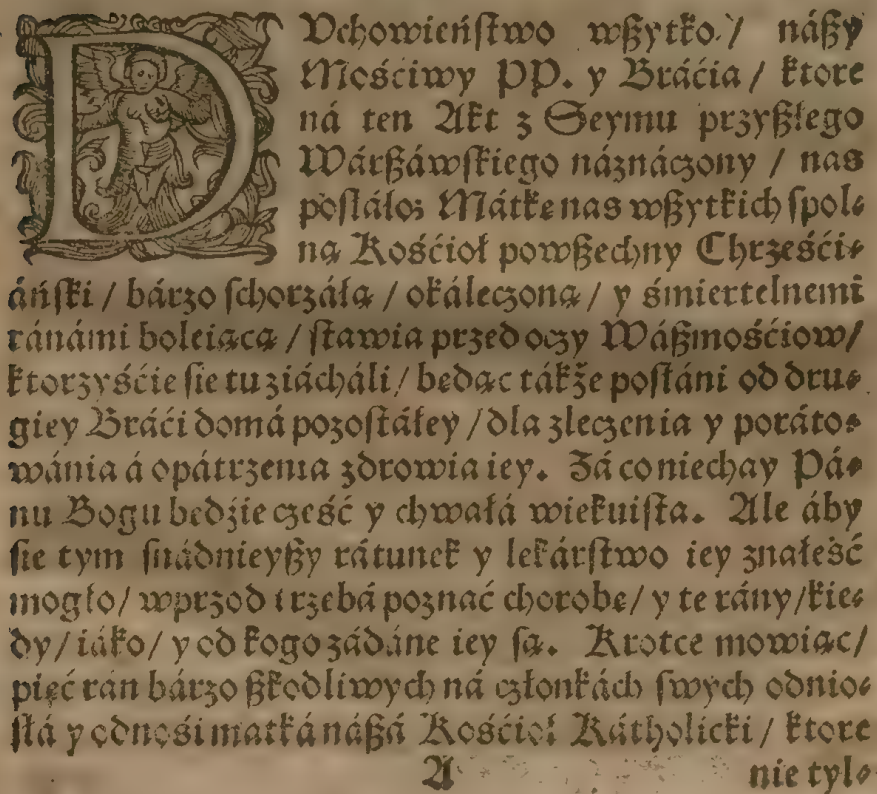 DVchowieńſtwo wßytko / náßy
Mośćiwy PP. y Bráćia / ktore
ná ten Akt z Seymu przyßłego
Wárßáwſkiego náznáczony / nas
poſłáło: Mátkę nas wßytkich ſpol⸗
ną Kośćioł powßechny Chrześći⸗
áńſki / bárzo ſchorzáłą / okáleczoną / y śmiertelnemi
ránámi boleiącą / ſtawia przed oczy Wáßmośćiow /
ktorzyśćie ſie tu ziácháli / bedąc tákże poſłáni od dru⸗
giey Bráći domá pozoſtáłey / dla zleczenia y poráto⸗
wánia á opátrzenia zdrowia iey. Zá co niechay Pá⸗
nu Bogu bedźie cześć y chwałá wiekuiſta. Ale áby
ſie tym ſnádnieyßy rátunek y lekárſtwo iey znaleść
mogło / wprzod trzebá poznáć chorobe / y te rány / kie⸗
dy / iáko / y od kogo zádáne iey ſą. Krotce mowiąc /
pięć ran bárzo ßkodliwych ná członkách ſwych odnio⸗
ſłá y odnośi matká náßá Kośćioł Káthol​icki / ktore
A nie tyl⸗